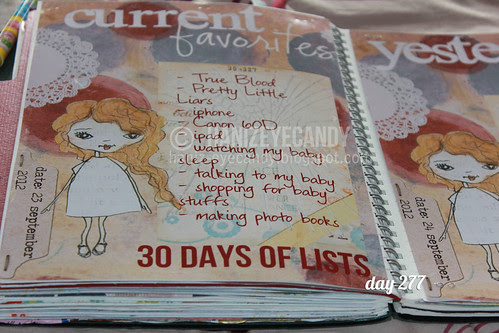 current
favorites
- True Blood
- Pretty Little
Liars
- iphone
- Canon 60D
- ipad
- watching my baby
sleep
- talking to my baby
- shopping for baby
stuffs
- making photo books
date: 23 september
2012
30 DAYS OF LISTS
day 277
yeste
date: 24 september
2012